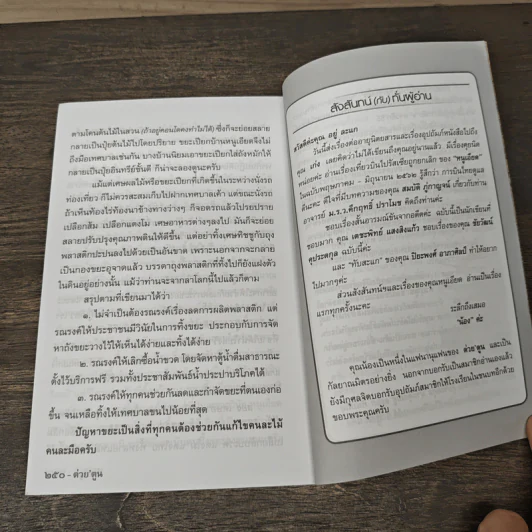 ตามโคนต้นไม้ในสวน (ถ้าอยู่คอนโดคงทำไม่ได้) ซึ่งก็จะย่อยสลาย
กลายเป็นปุ๋ยต้นไม้ไปโดยปริยาย ขยะเปียกบ้านหนูเอียดจึงไม่
ถึงมือเทศบาลเช่นกัน บางบ้านนิยมเอาขยะเปียกใส่ถังหมักให้
กลายเป็นปุ๋ยอินทรีย์ชั้นดี ก็น่าจะลองดูนะครับ
แม้แต่เศษผลไม้หรือขยะเปียกที่เกิดขึ้นในระหว่างนั่งรถ
ท่องเที่ยว ก็ไม่ควรสะสมเก็บไปฝากเทศบาลเค้า แต่ขณะนั่งรถ
ถ้าเห็นท้องไร่ท้องนาข้างทางว่างๆ ก็จอดรถแล้วโปรยปราย
เปลือกส้ม เปลือกแตงโม เศษอาหารต่างๆลงไป มันก็จะย่อย
สลายปรับปรุงคุณภาพดินให้ดีขึ้น แต่อย่าทิ้งเศษทิชชูกับถุง
พลาสติกปะปนลงไปด้วยเป็นอันขาด เพราะนอกจากจะกลาย
เป็นกองขยะอุจาดแล้ว บรรดาถุงพลาสติกที่ทิ้งไปก็ยังแฝงตัว
ในดินอยู่อย่างนั้น แม้ว่าท่านจะจากล่าโลกนี้ไปแล้วก็ตาม
สรุปตามที่เขียนมาได้ว่า
๑. ไม่จำเป็นต้องรณรงค์เรื่องลดการผลิตพลาสติก แต่
รณรงค์ให้ประชาชนมีวินัยในการทิ้งขยะ ประกอบกับการจัด
หาถังขยะวางไว้ให้เห็นได้ง่ายและทิ้งได้ง่าย
๒. รณรงค์ให้เลิกซื้อน้ำขวด โดยจัดหาตู้น้ำดื่มสาธารณะ
ตั้งไว้บริการฟรี รวมทั้งประชาสัมพันธ์น้ำประปาบริโภคได้
๓. รณรงค์ให้ทุกคนช่วยกันลดและกำจัดขยะที่ตนเองก่อ
ขึ้น จนเหลือทิ้งให้เทศบาลขนไปน้อยที่สุด
ปัญหาขยะเป็นสิ่งที่ทุกคนต้องช่วยกันแก้ไขคนละไม้
คนละมือครับ
๒๕๐ - ต่วย'ตูน
สังสันทน์ (กัน) กับผู้อ่าน
สวัสดีค่ะคุณ อยู่ ละแก
วันนี้ส่งเรื่องต่ออายุนิตยสารและเรื่องอุปถัมภ์หนังสือไปถึง
คุณ เก่ง เลยคิดว่าไม่ได้เขียนถึงคุณอยู่นานแล้ว มีเรื่องคุยนิด
หน่อยค่ะ อ่านเรื่องเที่ยวบินไปรัสเซียถูกยกเลิก ของ "หนูเอียด"
ในฉบับพฤษภาคม - มิถุนายน ๒๕๖๒ รู้สึกว่า การบินไทยดูแล
ดีนะคะ ดีใจที่มีบทความของคุณ สมบัติ ภู่กาญจน์ เกี่ยวกับท่าน
อาจารย์ ม.ร.ว.คึกฤทธิ์ ปราโมช คิดถึงท่านค่ะ
ชอบเรื่องสั้นอารมณ์ขันจากอดีตค่ะ ฉบับนี้เป็นนักเขียนที่
ชอบมาก คุณ เดชะพิทย์ แสงสิงแก้ว ชอบเรื่องของคุณ ชัยวัฒน์
คุประตกูล ฉบับนี้ค่ะ
และ "ทับสะแก" ของคุณ ปิยะพงศ์ อาภาศิลป์ ทำให้อยาก
ไปมากๆค่ะ
ส่วนสังสันทน์ฯและเรื่องของคุณหนูเอียด อ่านเป็นเรื่อง
แรกทุกครั้งนะคะ
ระลึกถึงเสมอ
"น้อง" ค่ะ
คุณน้องเป็นหนึ่งในแฟนานุแฟนของ ต่วย'ตูน และเป็น
กัลยาณมิตรอย่างยิ่ง นอกจากบอกรับเป็นสมาชิกอ่านเองแล้ว
ยังมีกุศลจิตบอกรับอุปถัมภ์สมาชิกให้โรงเรียนในชนบทอีกด้วย
ขอบพระคุณครับ